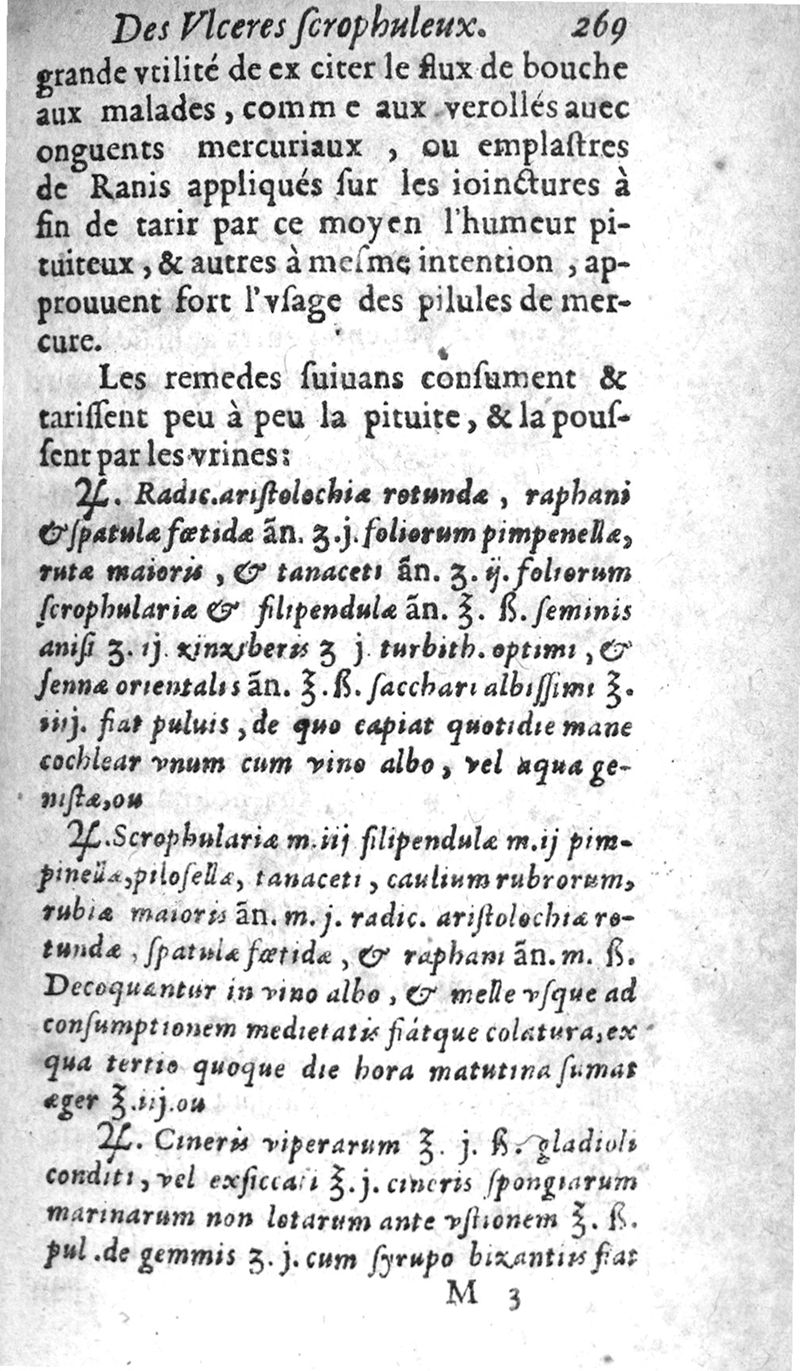 Des Vlceres ſcrophuleux. 269
grande vtilité de ex citer le flux de bouche
aux malades, comm e aux verollés auec
onguents mercuriaux, ou emplaſtres
de Ranis appliqués ſur les ioinctures à
fin de tarir par ce moyen l'humeur pi-
tuiteux, & autres à meſme intention, ap-
prouuent fort l'vſage des pilules de mer-
cure.
Les remedes ſuiuans conſument &
tariſſent peu à peu la pituite, & la pouſ-
ſent par les vrines:
♃. Radic. ariſtolochiæ rotundæ, raphani
& ſpatulæ fœtidæ ãn. ʒ. j. foliorum pimpenellæ,
rutæ maioris, & tanaceti ãn. ʒ. ij. foliorum
ſcrophulariæ & filipendulæ ãn. ℥. ß. ſeminis
aniſi ʒ. ij. zinziberis ʒ j. turbith. optimi, &
ſennæ orientalis ãn. ℥. ß. ſacchari albiſſimi ℥.
iiij. fiat puluis, de quo capiat quotidie mane
cochlear vnum cum vino albo, vel aqua ge-
niſtæ, ou
♃. Scrophulariæ m. iij filipendulæ m. ij pim-
pinellæ, piloſellæ, tanaceti, caulium rubrorum,
rubiæ maioris ãn. m. j. radic. ariſtolochiæ ro-
tundæ, ſpatulæ fœtidæ, & raphani ãn. m. ß.
Decoquantur in vino albo, & melle vſque ad
conſumptionem medietatis fiátque colatura, ex
qua tertio quoque die hora matutina ſumat
æger ℥. iij. ou
♃. Cineris viperarum ℥. j. ß. gladioli
conditi, vel exſiccati ℥. j. cineris ſpongiarum
marinarum non lotarum ante vſtionem ℥. ß.
pul. de gemmis ʒ. j. cum ſyrupo bizantiis fiat
M 3